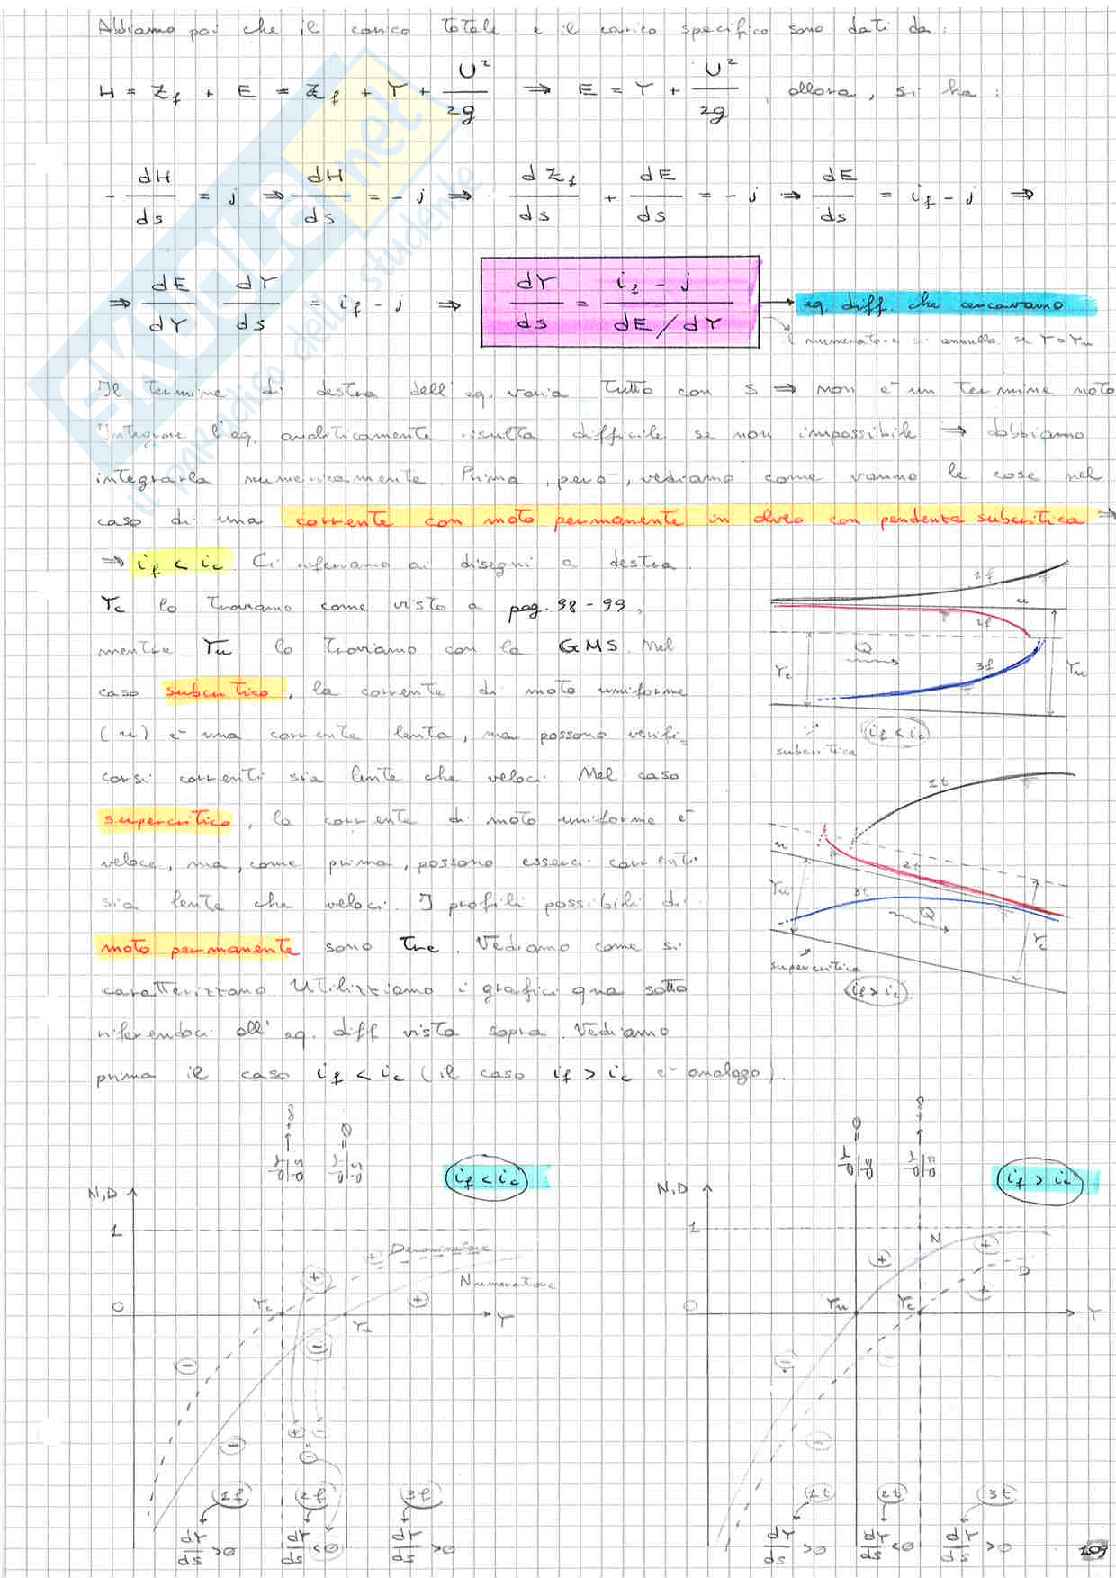 Abbiamo poi che il carico totale e il carico specifico sono dati da:
H = Z_f + E = Z_f + Y + U²/2g ⇒ E = Y + U²/2g, allora, si ha:
- dH/ds = j ⇒ dH/ds = - j ⇒ dZ_f/ds + dE/ds = - j ⇒ dE/ds = i_f - j ⇒
⇒ dE/dY dY/ds = i_f - j ⇒ dY/ds = (i_f - j)/(dE/dY) → eq. diff. che cercavamo
il numeratore si annulla se Y = Yu
Il termine di destra dell'eq. varia tutto con s ⇒ non è un termine noto
Integrare l'eq. analiticamente risulta difficile se non impossibile ⇒ dobbiamo
integrarla numericamente. Prima, però, vediamo come vanno le cose nel
caso di una corrente con moto permanente in alveo con pendenza subcritica ⇒
⇒ i_f < i_c. Ci riferiamo ai disegni a destra.
Yc lo troviamo come visto a pag. 98-99,
mentre Yu lo troviamo con la GMS. Nel
caso subcritico, la corrente di moto uniforme
(u) è una corrente lenta, ma possono verifi-
carsi correnti sia lente che veloci. Nel caso
supercritico, la corrente di moto uniforme è
veloce, ma, come prima, possono esserci correnti
sia lente che veloci. I profili possibili di
moto permanente sono tre. Vediamo come si
caratterizzano. Utilizziamo i grafici qua sotto
riferendoci all'eq. diff vista sopra. Vediamo
prima il caso i_f < i_c (il caso i_f > i_c è analogo).
1f
u
2f
Q
3f
Yc
Yu
subcritica
i_f < i_c
1t
u
2t
Yu
3t
Q
Yc
supercritica
i_f > i_c
dY/ds → ∞
dY/ds = 0
i_f < i_c
N,D
1
Denominatore
Numeratore
0
Yc
Y
1f
2f
3f
dY/ds > 0
dY/ds < 0
dY/ds > 0
dY/ds = 0
dY/ds → ∞
i_f > i_c
N,D
1
N
D
0
Yu
Yc
Y
1t
2t
3t
dY/ds > 0
dY/ds < 0
dY/ds > 0